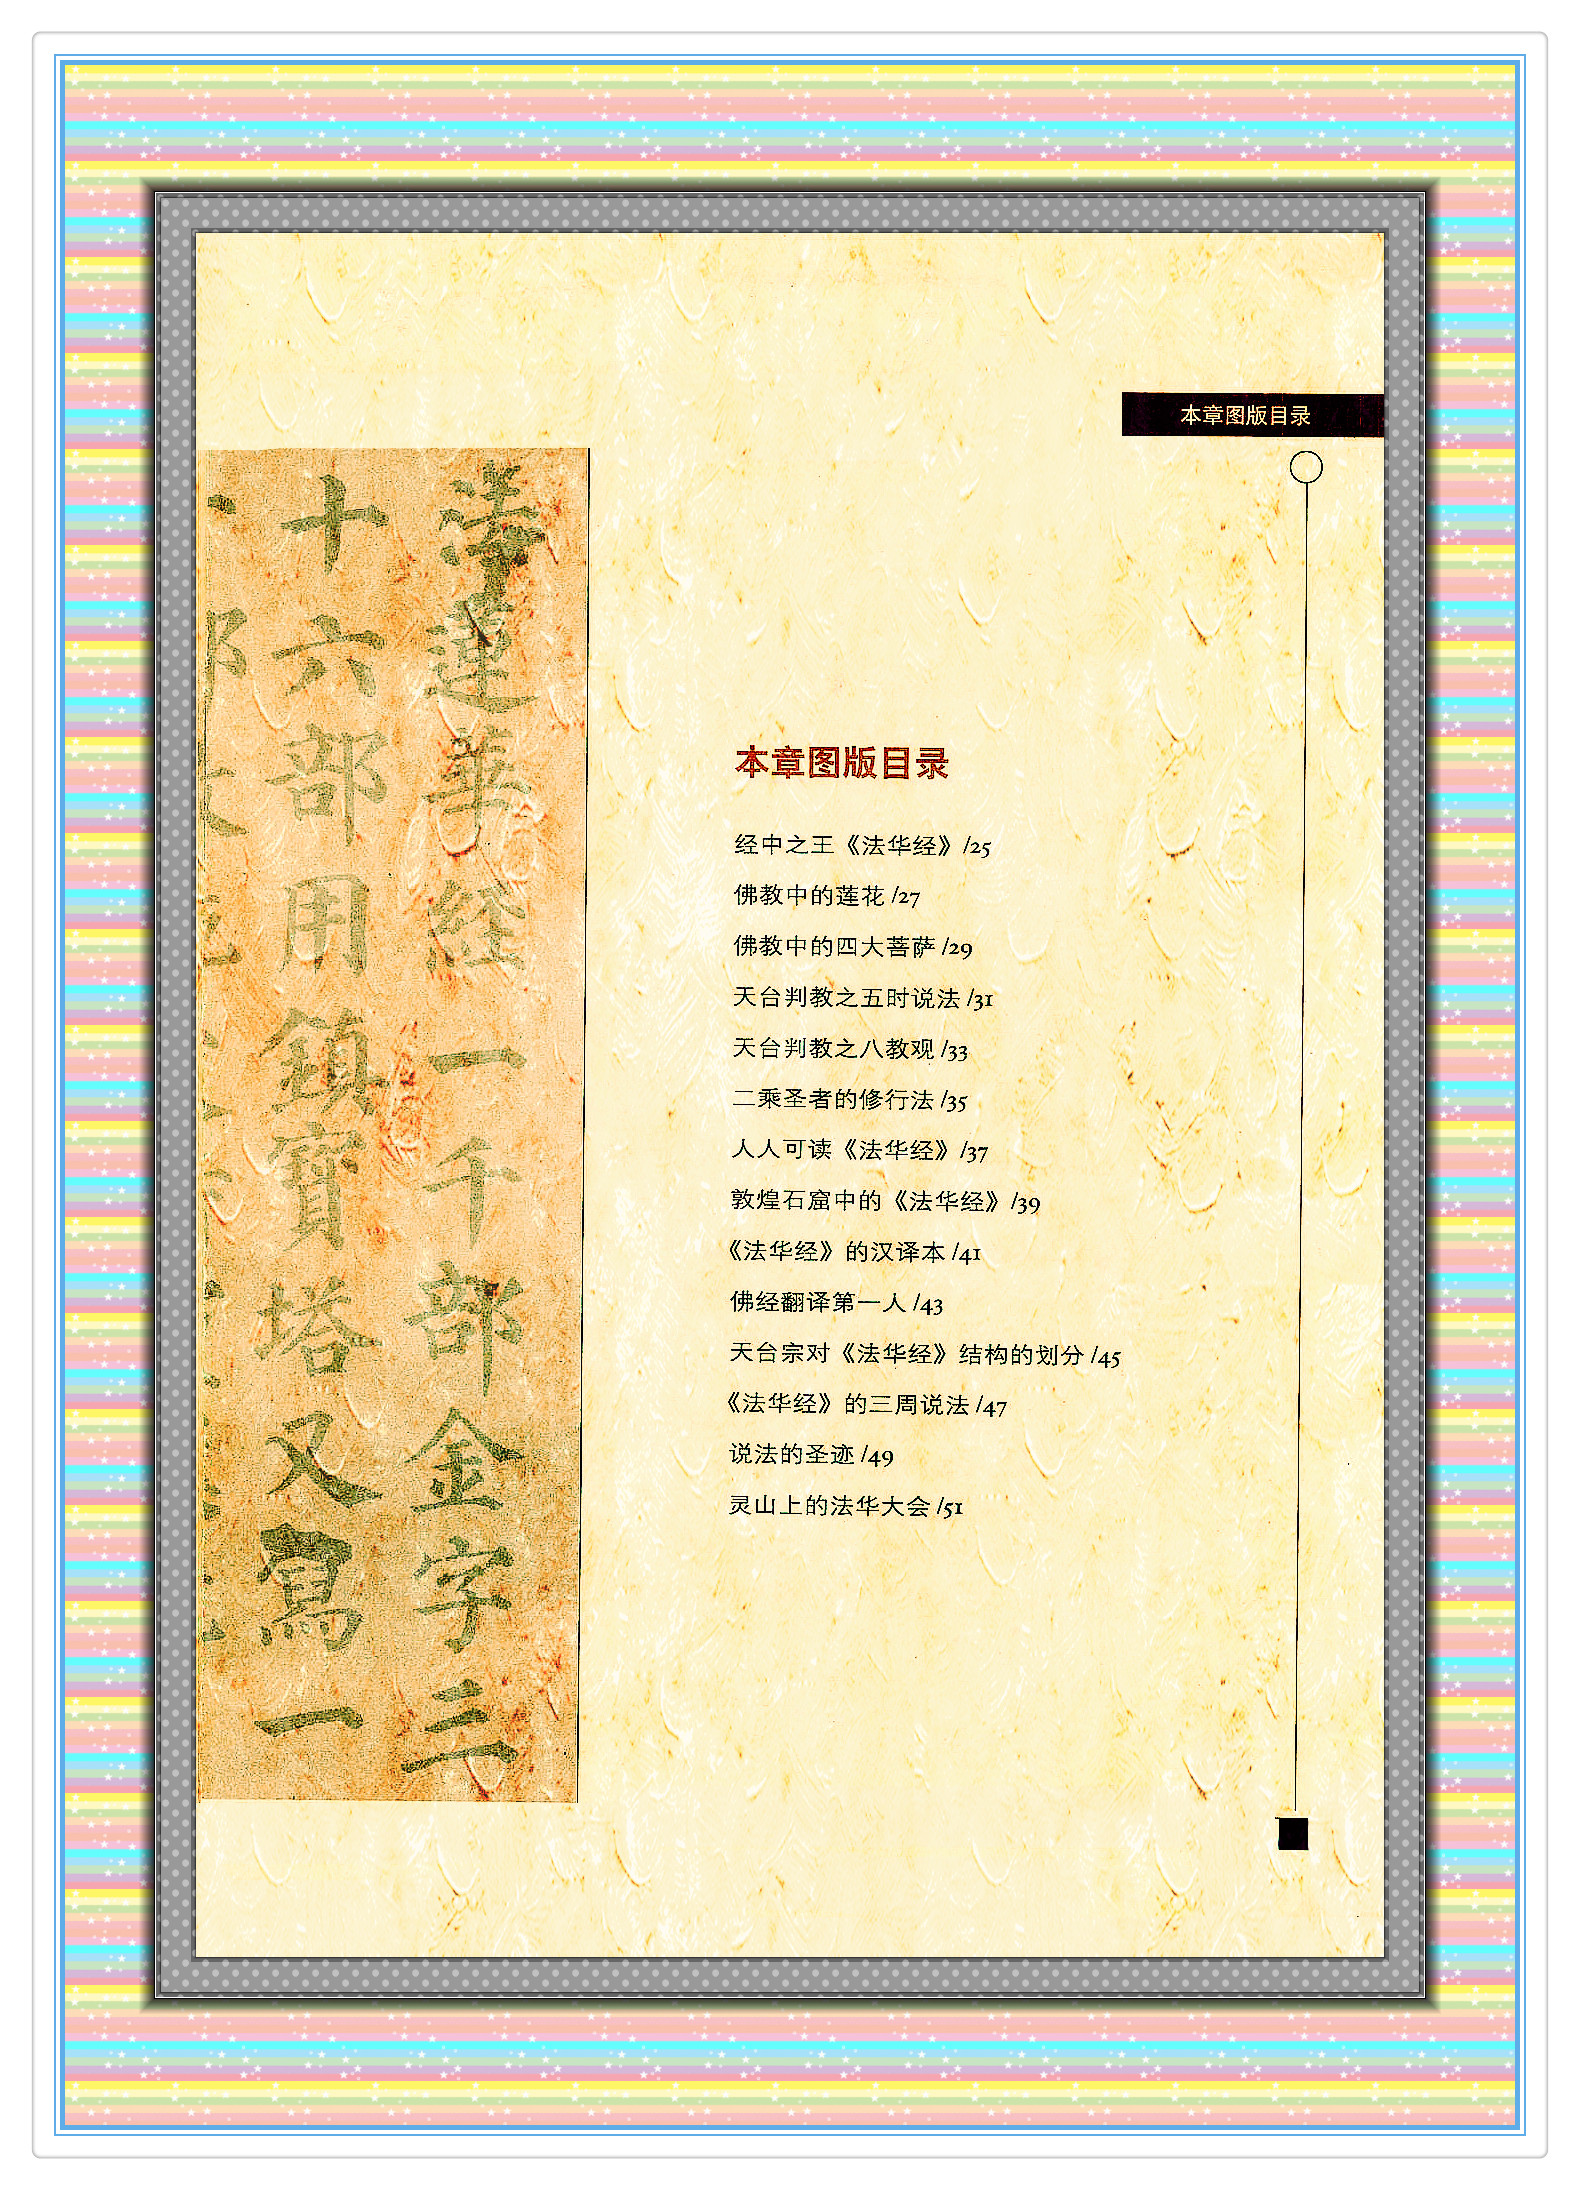 本章图版目录
法莲华经一千部金字三
十六部用鎮寶塔又寫一
本章图版目录
经中之王《法华经》/25
佛教中的莲花 /27
佛教中的四大菩萨 /29
天台判教之五时说法 /31
天台判教之八教观 /33
二乘圣者的修行法 /35
人人可读《法华经》/37
敦煌石窟中的《法华经》/39
《法华经》的汉译本 /41
佛经翻译第一人 /43
天台宗对《法华经》结构的划分 /45
《法华经》的三周说法 /47
说法的圣迹 /49
灵山上的法华大会 /51